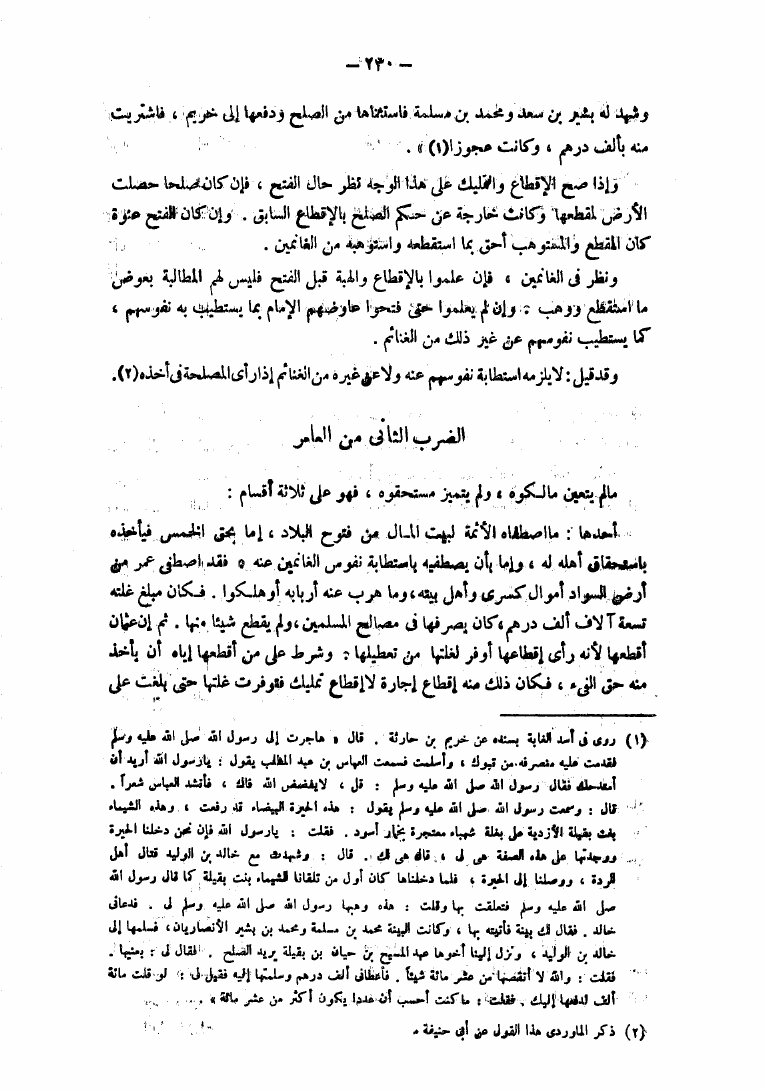 — ٢٣٠ —
وشهد له بشير بن سعد ومحمد بن مسلمة فاستثناها من الصلح ودفعها إلى خريم ، فاشتريت
منه بألف درهم ، وكانت عجوزا(١) » .
وإذا صح الإقطاع والتمليك على هذا الوجه نظر حال الفتح ، فإن كان صلحا حصلت
الأرض لمقطعها وكانت خارجة عن حكم الصلح بالإقطاع السابق . وإن كان الفتح عنوة
كان المقطع والمستوهب أحق بما استقطعه واستوهبه من الغانمين .
ونظر فى الغانمين ، فإن علموا بالإقطاع والهبة قبل الفتح فليس لهم المطالبة بعوض
ما استقطع ووهب ، وإن لم يعلموا حتى فتحوا عاوضهم الإمام بما يستطيب به نفوسهم ،
كما يستطيب نفوسهم عن غير ذلك من الغنائم .
وقد قيل : لايلزمه استطابة نفوسهم عنه ولا عن غيره من الغنائم إذا رأى المصلحة فى أخذه(٢).
الضرب الثانى من العامر
مالم يتعين مالكوه ، ولم يتميز مستحقوه ، فهو على ثلاثة أقسام :
أحدها : ما اصطفاه الأئمة لبيت المال من فتوح البلاد ، إما بحق الخمس فيأخذه
باستحقاق أهله له ، وإما بأن يصطفيه باستطابة نفوس الغانمين عنه « فقد اصطفى عمر من
أرض السواد أموال كسرى وأهل بيته ، وما هرب عنه أربابه أو هلكوا . فكان مبلغ غلته
تسعة آلاف ألف درهم ، كان يصرفها فى مصالح المسلمين ، ولم يقطع شيئا منها . ثم إن عثمان
أقطعها لأنه رأى إقطاعها أوفر لغلتها من تعطيلها ؛ وشرط على من أقطعها إياه أن يأخذ
منه حق الفىء ، فكان ذلك منه إقطاع إجارة لا إقطاع تمليك فتوفرت غلتها حتى بلغت على
(١) روى فى أسد الغابة بسنده عن خريم بن حارثة . قال « هاجرت إلى رسول الله صلى الله عليه وسلم
فقدمت عليه منصرفه من تبوك ، وأسلمت فسمعت العباس بن عبد المطلب يقول : يارسول الله أريد أن
أمتدحك فقال رسول الله صلى الله عليه وسلم : قل ، لايفضض الله فاك ، فأنشد العباس شعراً .
قال : وسمعت رسول الله صلى الله عليه وسلم يقول : هذه الحيرة البيضاء قد رفعت ، وهذه الشيماء
بنت بقيلة الأزدية على بغلة شهباء معتجرة بخمار أسود . فقلت : يارسول الله فإن نحن دخلنا الحيرة
ووجدتها على هذه الصفة هى لى ، قال هى لك . قال : وشهدت مع خالد بن الوليد قتال أهل
الردة ، ووصلنا إلى الحيرة ، فلما دخلناها كان أول من تلقانا الشيماء بنت بقيلة كما قال رسول الله
صلى الله عليه وسلم فتعلقت بها وقلت : هذه وهبها رسول الله صلى الله عليه وسلم لى . فدعانى
خالد . فقال لك بينة فأتيته بها ، وكانت البينة محمد بن مسلمة ومحمد بن بشير الأنصاريان ، فسلمها إلى
خالد بن الوليد ، ونزل إلينا أخوها عبد المسيح بن حيان بن بقيلة يريد الصلح . فقال لى : بعنيها .
فقلت : والله لا أنقصها من عشر مائة شيئاً . فأعطانى ألف درهم وسلمتها إليه فقيل لى : لو قلت مائة
ألف لدفعها إليك . فقلت : ما كنت أحسب أن عددا يكون أكثر من عشر مائة » .
(٢) ذكر الماوردى هذا القول عن أبى حنيفة .